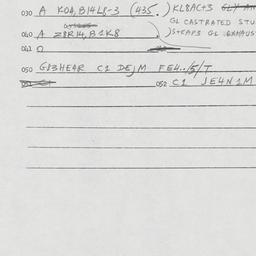 030 A KOA, B14L8-3 (435. ) KL8AC+3
GL CASTRATED STU
040 A Z8R14, B1K8 )S+CAP3 GL EXHAUS
041 O
050 G83HEAR C1 DEJM FE4../5/T
052 C1 JE4N1M